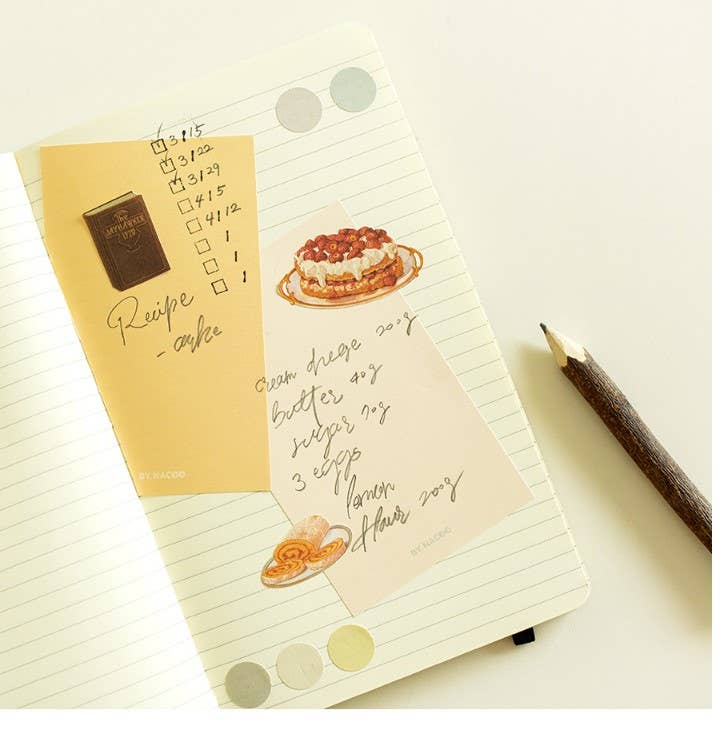 3/15
3/22
3/29
4/5
4/12
/
/
/
THE
JAYHAWKER
1920
Recipe
BY.NACOO
cream cheese 200g
butter 40g
sugar 70g
3 eggs
lemon
flour 200g
BY.NACOO